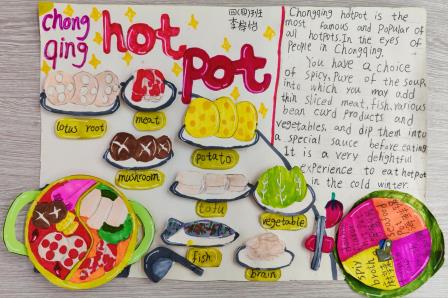 chong
qing
hot
pot
lotus root
meat
mushroom
potato
tofu
vegetable
fish
brain
Chongqing hotpot is the
most famous and popular of
all hotpots. In the eyes of
people in Chongqing.
You have a choice
of spicy, Pure of the soup,
into which you may add
thin sliced meat, fish, various
bean curd products and
vegetables, and dip them into
a special sauce before eating
It is a very delightful
experience to eat hotpot
in the cold winter.
spicy
broth